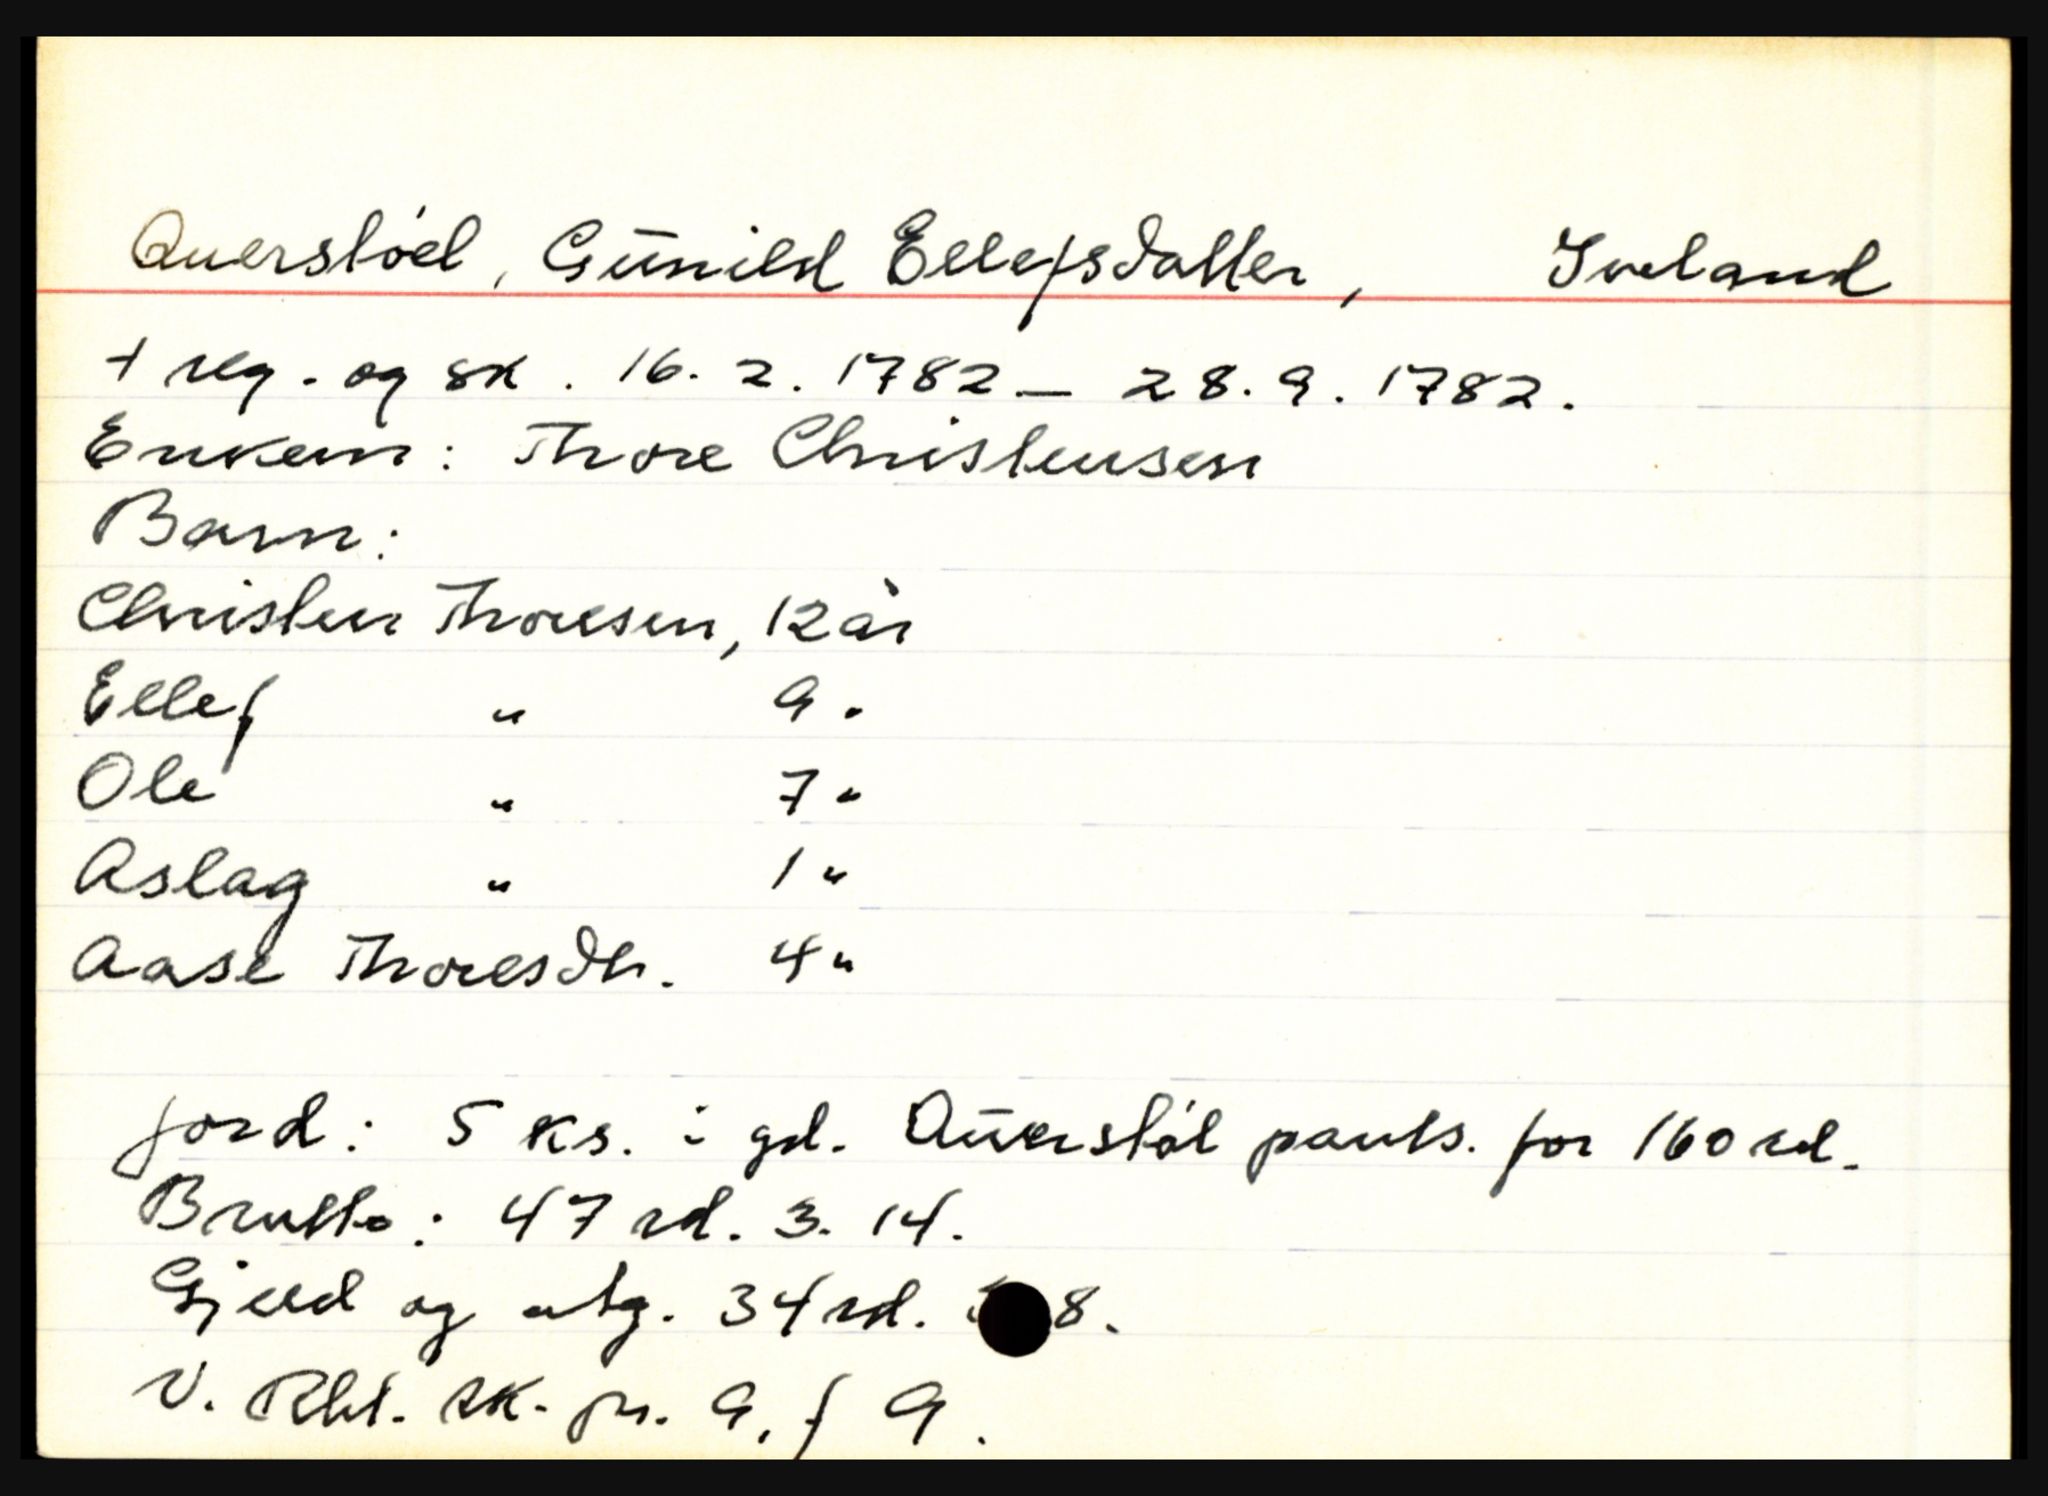 Auerstóel, Gūnild Ellefsdatter, Iveland
+ reg. og sk. 16. 2. 1782 – 28. 9. 1782.
Enkem: Thore Christensen
Barn:
Christen Thoresen, 12 år
Ellef " 9 "
Ole " 7 "
Aslag " 1 "
Aase Thoresdtr. 4 "
Jord: 5 ks. i gd. Aūerstøl pants. for 160 rd.
Brutto: 47 rd. 3. 14.
Gjeld og utg. 34 rd. 8.
V. Rbl. sk. pr. 9, f 9.